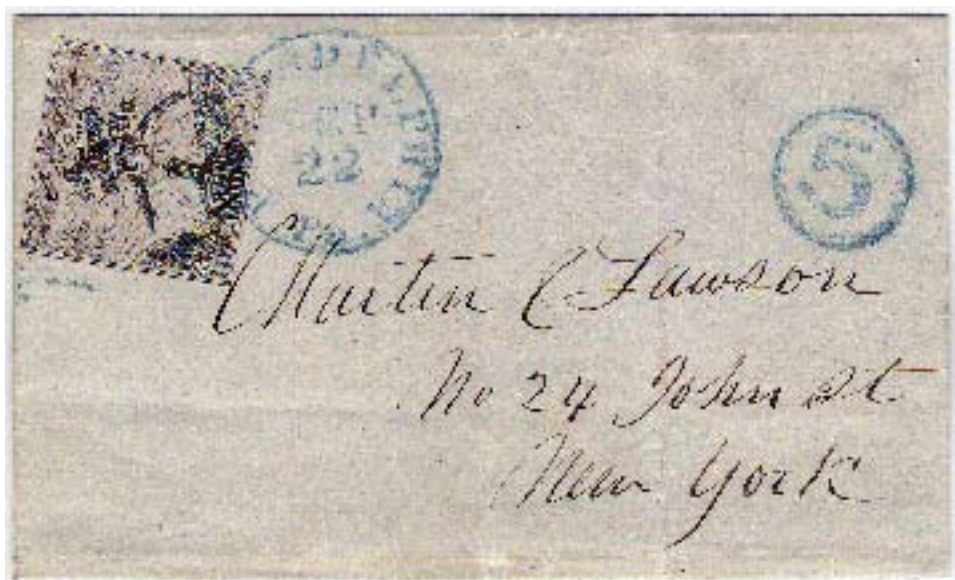 SEP
22
5
Martin C Lawson
No 24 John St
New York